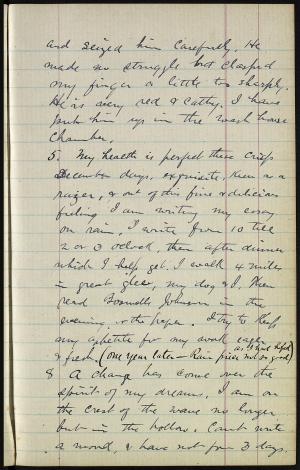 and seized him carefully. He
made no struggle but clasped
my finger a little too sharply.
He is very red & catty. I have
put him up in the wash house
chamber.
5. My health is perfect these crisp
December days, exquisite, keen as a
razor, & out of this fine & delicious
feeling I am writing my essay
on rain. I write from 10 till
2 or 3 o'clock, then after dinner
which I help get, I walk 4 miles
in great glee, my dog & I. Then
read Boswell's Johnson in the
evening, or the paper. I try to keep
my appetite for my work eager
& fresh. (one year later - Rain piece not so good
as I had hoped)
8 A change has come over the
spirit of my dreams. I am on
the crest of the wave no longer
but in the hollow. Can't write
a word, & have not for 3 days.